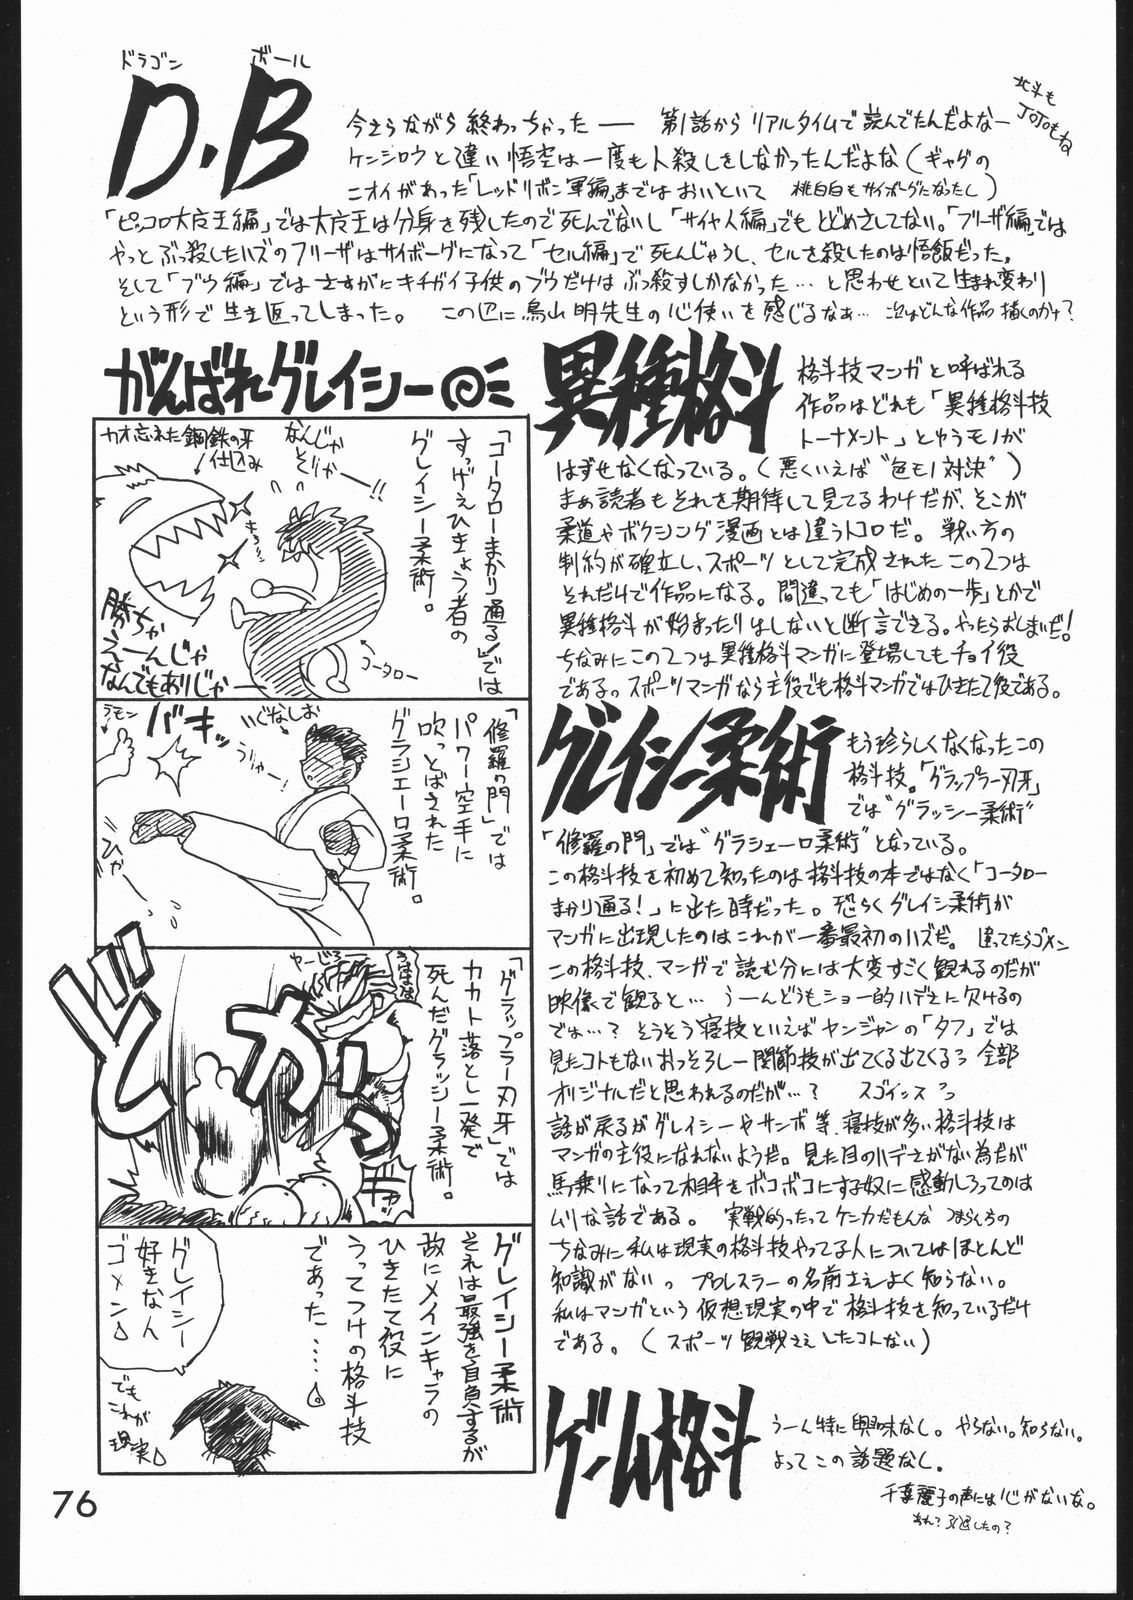 ドラゴン ボール
D.B
今さらながら終わっちゃった ―― 第1話からリアルタイムで読んでたんだよなー
北斗も
JOJOもね
ケンシロウと違い悟空は一度も人殺しをしなかったんだよな(ギャグの
ニオイがあった「レッドリボン軍編」まではおいといて 桃白白もサイボーグになったし)
「ピッコロ大魔王編」では大魔王は分身を残したので死んでないし「サイヤ人編」でもとどめさしてない。「フリーザ編」では
やっとぶっ殺したハズのフリーザはサイボーグになって「セル編」で死んじゃうし、セルを殺したのは悟飯だった。
そして「ブウ編」ではさすがにキチガイ子供のブウだけはぶっ殺すしかなかった…と思わせといて生まれ変わり
という形で生き返ってしまった。 この辺に鳥山明先生の心使いを感じるなぁ… 次はどんな作品描くのかナ?
がんばれグレイシー
「コータローまかり通る!」では
すっげえひきょう者の
グレイシー柔術。
カオ忘れた鋼鉄の牙
仕込み
なんじゃ
そりゃー!!
勝ちゃ
えーんじゃ
なんでもありじゃー
コータロー
「修羅の門」では
パワー空手に
吹っとばされた
グラシエーロ柔術。
ラモン
バキッ
いぐなしお
うりゃー!
ひゃー
「グラップラー刃牙」では
カカト落とし一発で
死んだグラッシー柔術。
どかっ
グレイシー柔術
それは最強を自負するが
故にメインキャラの
ひきたて役に
うってつけの格斗技
であった……
グレイシー
好きなん
ゴメン
でも
これが
現実
異種格斗
格斗技マンガと呼ばれる
作品はどれも「異種格斗技
トーナメント」とゆうモノが
はずせなくなっている。(悪くいえば"色モノ対決")
まぁ読者もそれを期待して見てるわけだが、そこが
柔道やボクシング漫画とは違うトコロだ。戦い方の
制約が確立し、スポーツとして完成されたこの2つは
それだけで作品になる。間違っても「はじめの一歩」とかで
異種格斗が始まったりはしないと断言できる。やったらおしまいだ!
ちなみにこの2つは異種格斗マンガに登場してもチョイ役
である。スポーツマンガなら主役でも格斗マンガではひきたて役である。
グレイシー柔術
もう珍らしくなくなったこの
格斗技。「グラップラー刃牙」
では"グラッシー柔術"
「修羅の門」では"グラシエーロ柔術"となっている。
この格斗技を初めて知ったのは格斗技の本ではなく「コータロー
まかり通る!」に出た時だった。恐らくグレイシー柔術が
マンガに出現したのはこれが一番最初のハズだ。違ってたらゴメン
この格斗技、マンガで読む分には大変すごく観れるのだが
映像で観ると… うーんどうもショー的ハデさに欠けるの
では…? そうそう寝技といえばヤンジャンの「タフ」では
見たコトもないおっそろしー関節技が出てくる出てくるっ 全部
オリジナルだと思われるのだが…? スゴイッスっ
話が戻るがグレイシーやサンボ等、寝技が多い格斗技は
マンガの主役になれないようだ。見た目のハデさがない為だが
馬乗りになって相手をボコボコにする奴に感動しろってのは
ムリな話である。 実戦的ったってケンカだもんな つまらんもの
ちなみに私は現実の格斗技やってる人についてはほとんど
知識がない。 プロレスラーの名前さえよく知らない。
私はマンガという仮想現実の中で格斗技を知っているだけ
である。(スポーツ観戦さえしたコトない)
ゲーム格斗
うーん特に興味なし。やらない。知らない。
よってこの話題なし。
千葉麗子の声には心がないな。
あれ?引退したの?
76